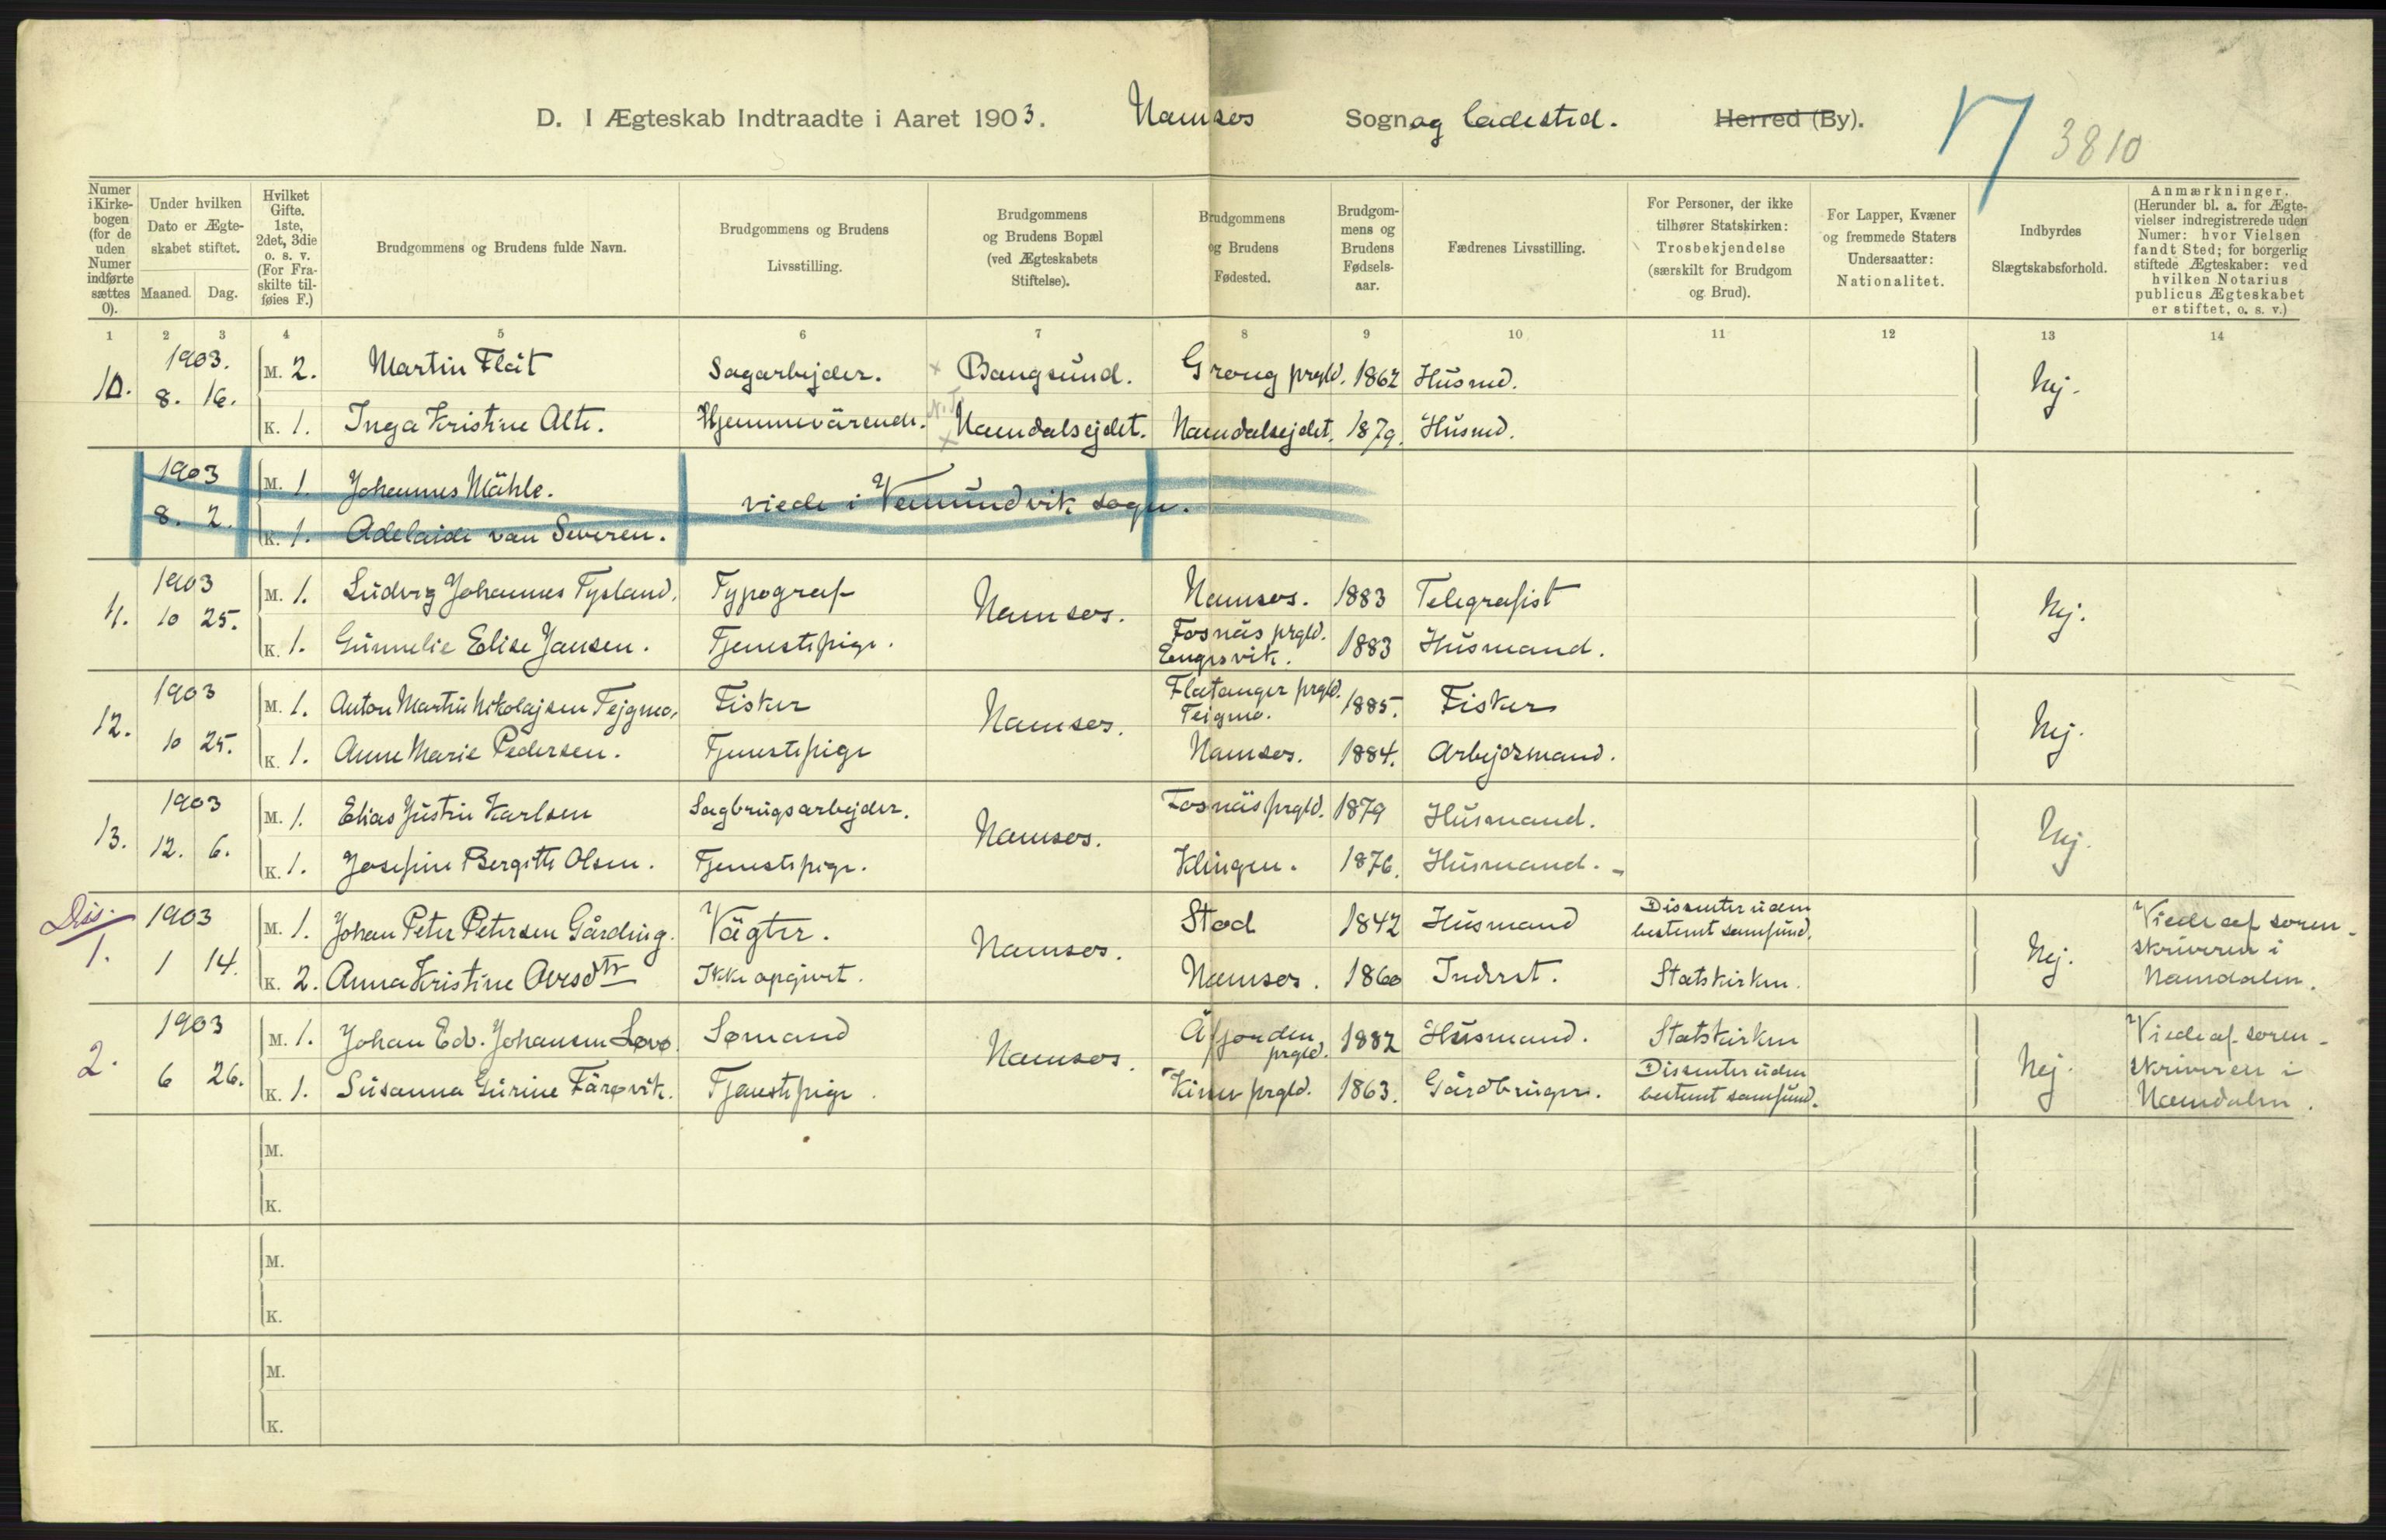 D. I Ægteskab Indtraadte i Aaret 1903. Namsos Sogn og ladested. Herred (By). 3810
Numer i Kirkebogen (for de uden Numer indførte sættes 0).
Under hvilken Dato er Ægteskabet stiftet. Maaned. Dag.
Hvilket Gifte. 1ste, 2det, 3die o. s. v. (For Fraskilte tilføies F.)
Brudgommens og Brudens fulde Navn.
Brudgommens og Brudens Livsstilling.
Brudgommens og Brudens Bopæl (ved Ægteskabets Stiftelse).
Brudgommens og Brudens Fødested.
Brudgommens og Brudens Fødselsaar.
Fædrenes Livsstilling.
For Personer, der ikke tilhører Statskirken: Trosbekjendelse (særskilt for Brudgom og Brud).
For Lapper, Kvæner og fremmede Staters Undersaatter: Nationalitet.
Indbyrdes Slægtskabsforhold.
Anmærkninger. (Herunder bl. a. for Ægtevielser indregistrerede uden Numer: hvor Vielsen fandt Sted; for borgerlig stiftede Ægteskaber: ved hvilken Notarius publicus Ægteskabet er stiftet, o. s. v.)
1 2 3 4 5 6 7 8 9 10 11 12 13 14
10. 1903. 8. 16. M. 2. Martin Flåt Sagarbejder. Bangsund. Grong prgld. 1862 Husmd. Nej.
K. 1. Inga Kristine Alte. Hjemmeværende. Namdalsejdet. Namdalsejdet. 1879. Husmd.
1903 8. 2. M. 1. Johannes Mähle. viede i Vemundvik sogn.
K. 1. Adelaide van Severen.
11. 1903 10 25. M. 1. Ludvig Johannes Fysland. Typograf Namsos. Namsos. 1883 Telegrafist Nej.
K. 1. Gunnelie Elise Jansen. Tjenestepige. Fosnäs prgld. Engesvik. 1883 Husmand.
12. 1903 10 25. M. 1. Anton Martin Nikolajsen Tejgmo. Fisker Namsos. Flatanger prgld. Teigmo. 1885. Fisker Nej.
K. 1. Anne Marie Pedersen. Tjenestepige Namsos. 1884. Arbejdsmand.
13. 1903 12. 6. M. 1. Elias Justin Karlsen Sagbrugsarbejder. Namsos. Fosnäs prgld. 1879 Husmand. Nej.
K. 1. Josefine Bergitte Olsen. Tjenestepige. Klingen. 1876. Husmand.
Dis. 1. 1903 1 14. M. 1. Johan Peter Petersen Gårding. Vägter. Namsos. Stod 1842 Husmand Dissenter uden bestemt samfund. Nej. Viede af sorenskriveren i Namdalen.
K. 2. Anna Kristine Arnsdtr Ikke opgivet. Namsos. 1860 Inderst. Statskirken.
2. 1903 6 26. M. 1. Johan Edv. Johansen Løvø. Sømand Namsos. Åfjorden prgld. 1882 Husmand. Statskirken Nej. Viede af sorenskriveren i Namdalen.
K. 1. Susanna Gurine Färøvik. Tjenestepige. Kinn prgld. 1863. Gårdbruger. Dissenter uden bestemt samfund.
M.
K.
M.
K.
M.
K.